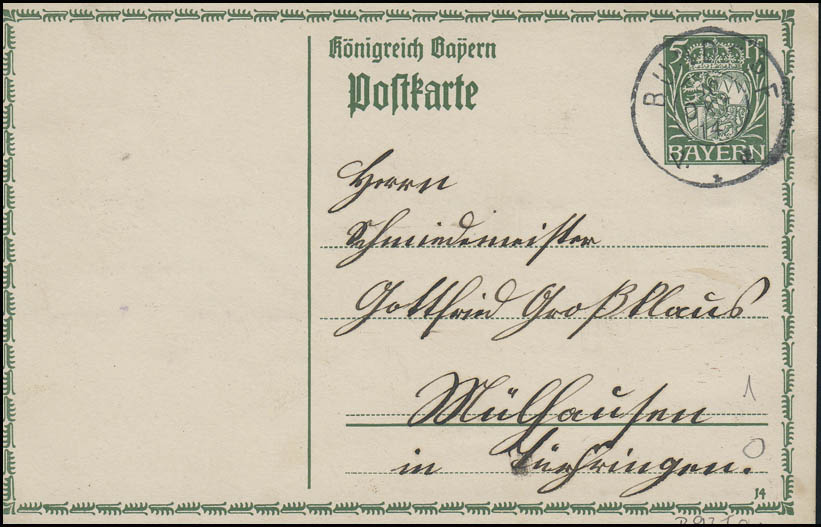 Königreich Bayern
Postkarte
5 Pf
BAYERN
Herrn
Schmiedemeister
Gottfried Großklaus
Mülhausen
in Thüringen.
1
0
14